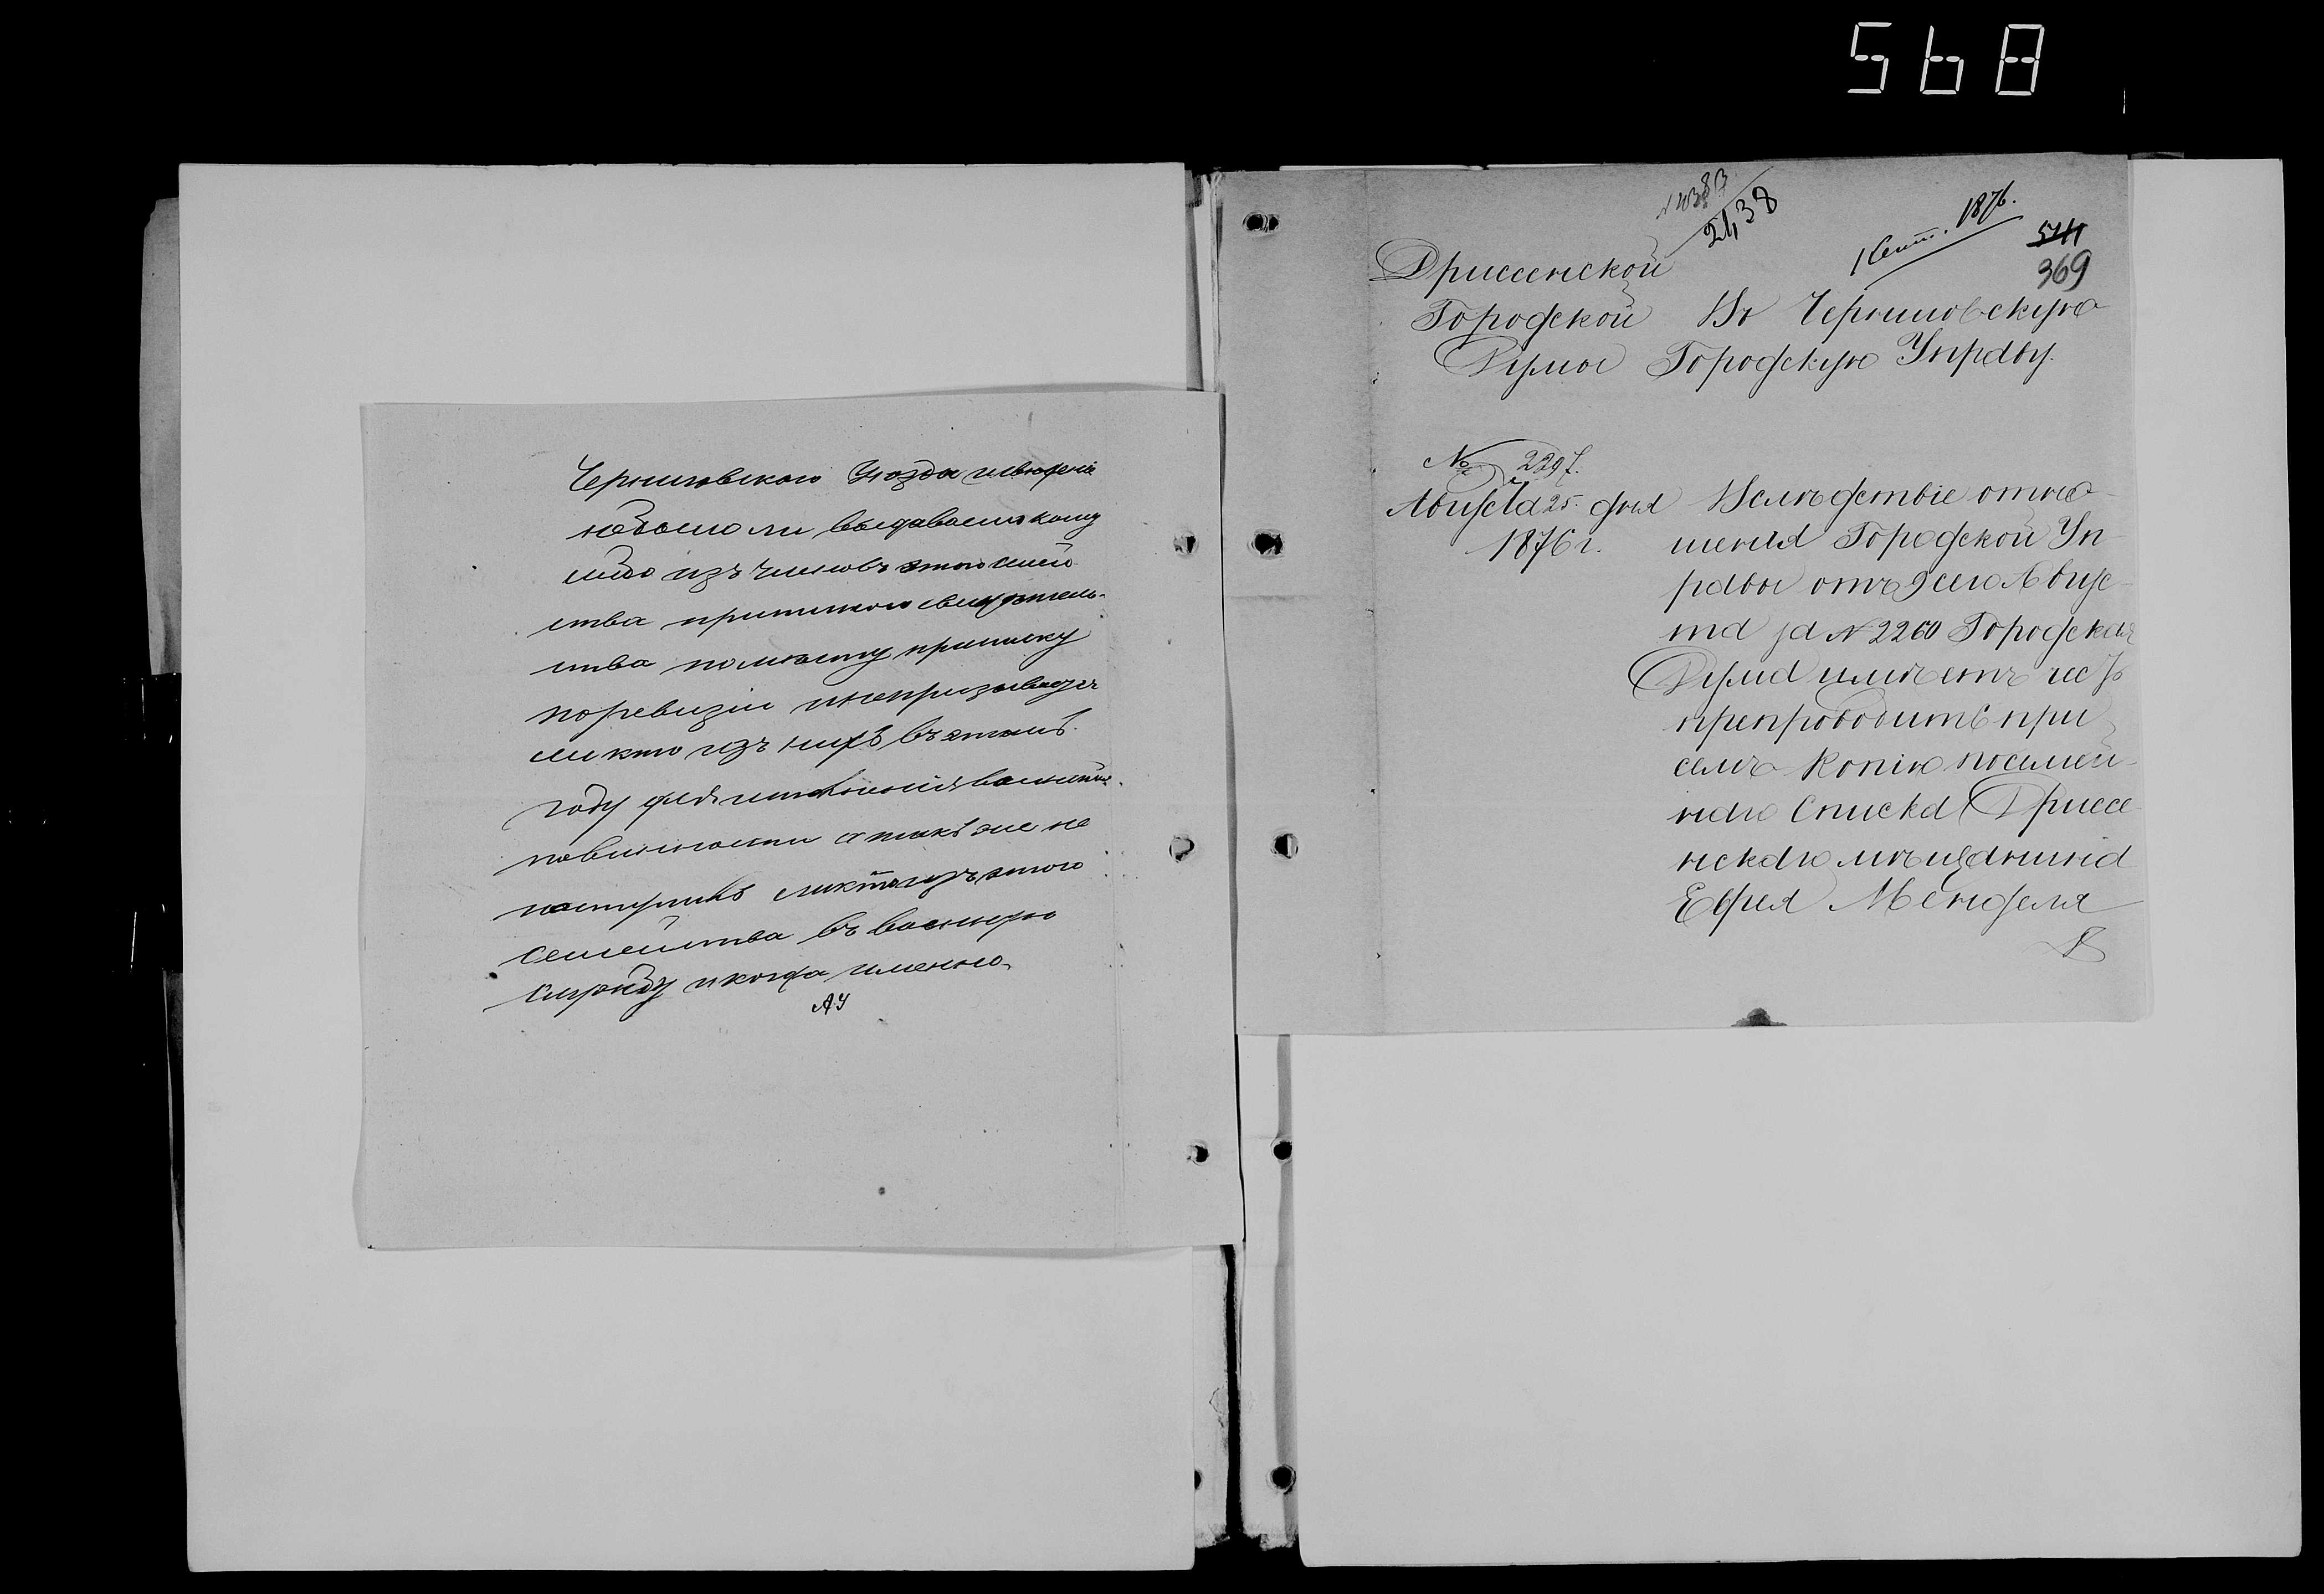 568
Черниговскаго Уѣзда и свѣденія
небыло ли выдаваемо кому
либо изъ членовъ этого семей-
ства приписного свидѣтель-
ства по моему приписку
по ревизіи и непризывался
ли кто изъ нихъ въ этомъ
году для исполненія воинской
повинности а также не
поступилъ ли кто изъ этого
семейства въ военную
службу и когда именно.
2438
1 Сент. 1876.
369
Дриссенской
Городской
Думы
Въ Черниговскую
Городскую Управу.
№ 2297.
Августа 25 дня
1876 г.
Вслѣдствіе отно-
шенія Городской Уп-
равы отъ 9 сего Авгус-
та за № 2260 Городская
Дума имѣетъ честь
препроводить при
семъ копію посемей-
наго Списка Дриссе-
нскаго мѣщанина
Еврея Менделя